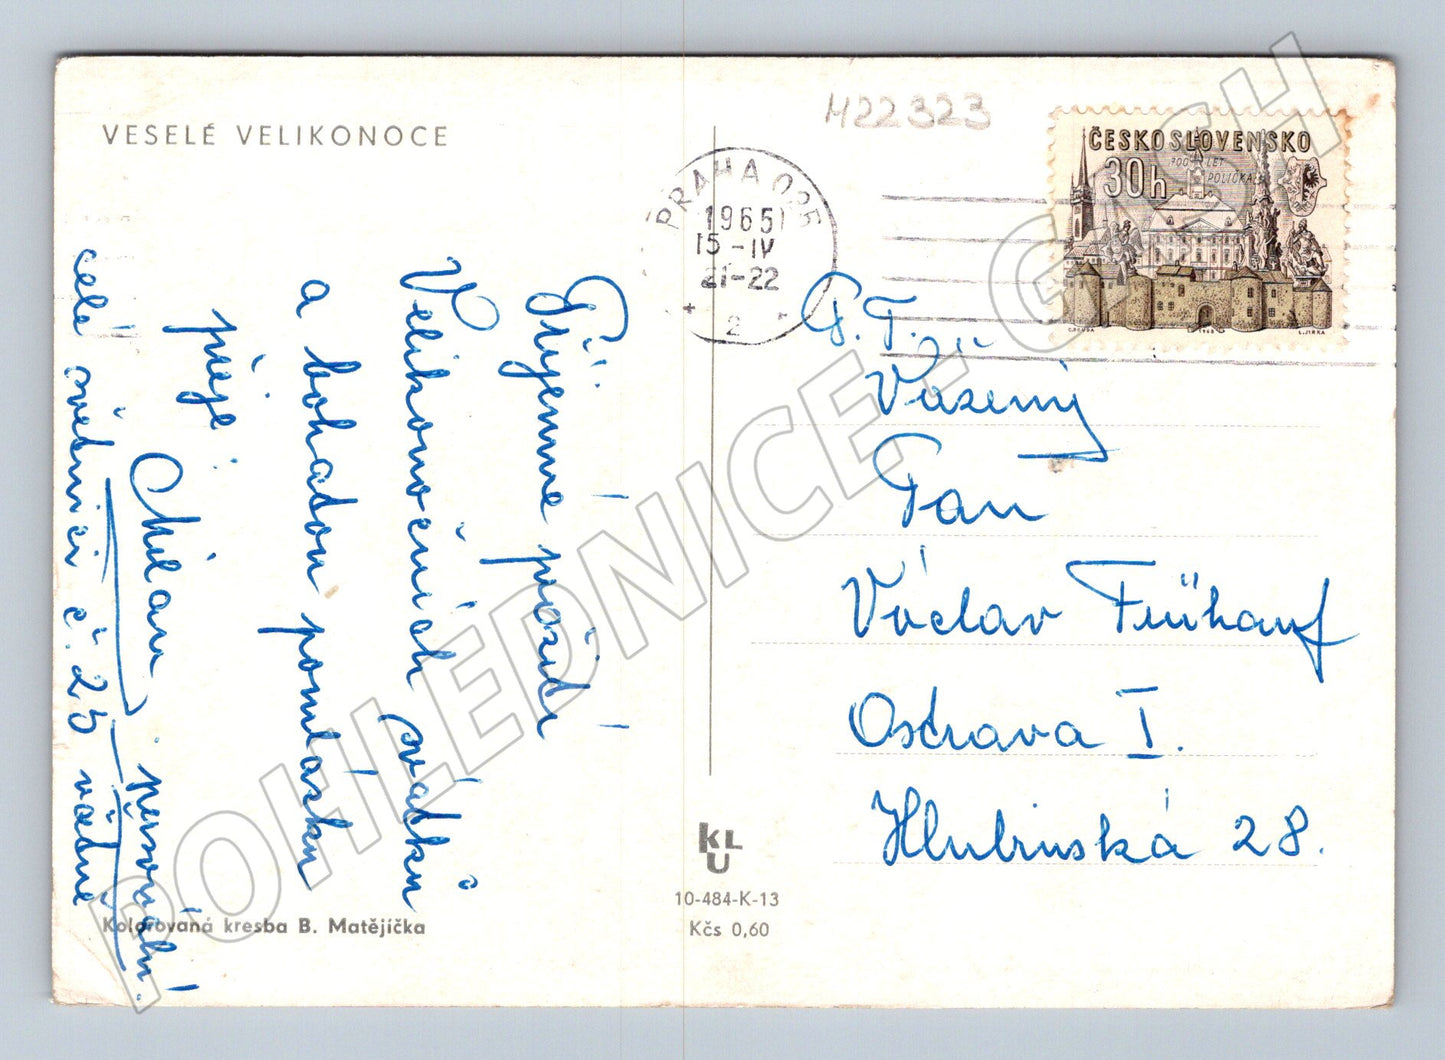 VESELÉ VELIKONOCE
M22323
PRAHA 025
1965
15-IV
21-22
2
ČESKOSLOVENSKO
30h
700 LET
POLIČKA
1965
L.JIRKA
Příjemné prožití
Velikonočních svátků
a bohatou pomlázku
přeje
Milan
celé světnici č. 25 vážně
P. T.
Vážený
Pan
Václav Frühauf
Ostrava I.
Hlubinská 28.
KLU
10-484-K-13
Kčs 0,60
Kolorovaná kresba B. Matějíčka
POHLEDNICE - GASH